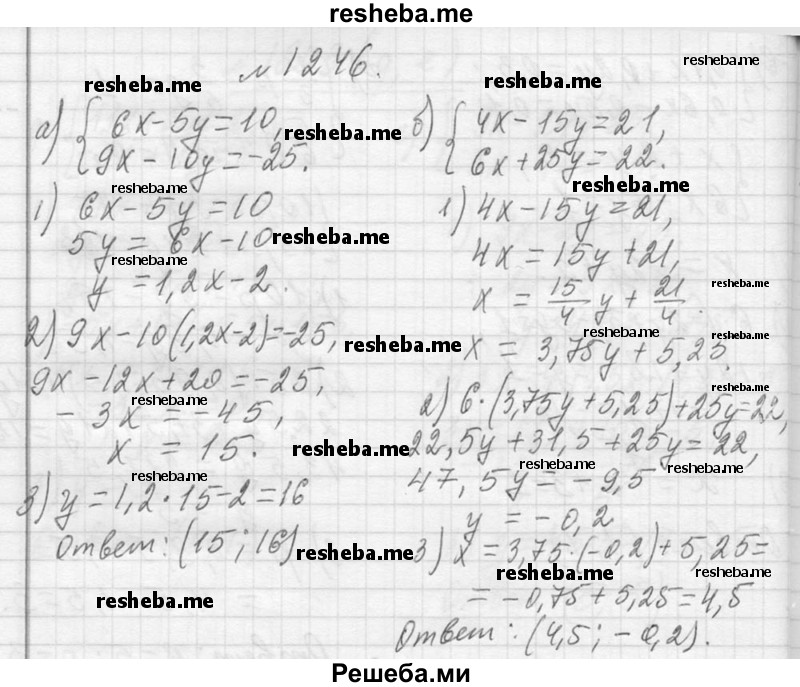 resheba.me
№1246.
resheba.me
resheba.me
resheba.me
а) { 6x-5y=10,
9x-10y=-25.
resheba.me
resheba.me
1) 6x-5y=10
5y=6x-10
resheba.me
resheba.me
y=1,2x-2.
2) 9x-10(1,2x-2)=-25,
resheba.me
9x-12x+20=-25,
resheba.me
-3x=-45,
x=15.
resheba.me
resheba.me
3) y=1,2·15-2=16
Ответ: (15; 16)
resheba.me
resheba.me
б) { 4x-15y=21,
6x+25y=22.
resheba.me
1) 4x-15y=21,
4x=15y+21,
x=15/4 y+21/4.
resheba.me
resheba.me
x=3,75y+5,25.
resheba.me
2) 6·(3,75y+5,25)+25y=22,
22,5y+31,5+25y=22,
resheba.me
resheba.me
47,5y=-9,5
y=-0,2
3) x=3,75·(-0,2)+5,25=
resheba.me
resheba.me
=-0,75+5,25=4,5
Ответ: (4,5; -0,2).
Решеба.ми